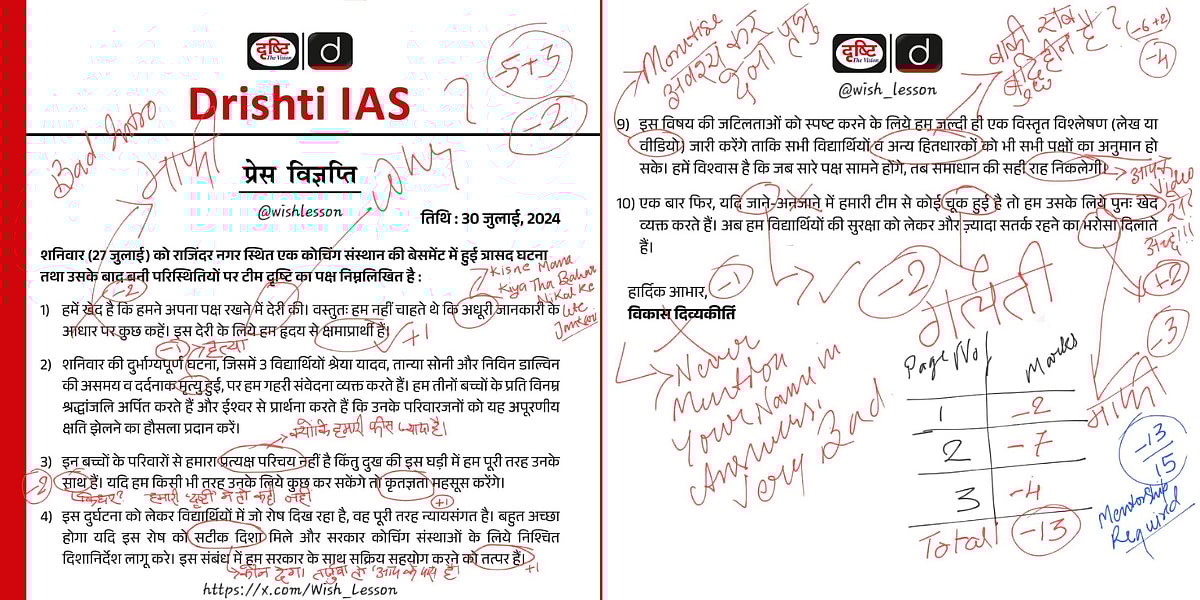 दृष्टि
The Vision
d
Drishti IAS
?
-5+3
-2
Bad Intro
माफी
Why
प्रेस विज्ञप्ति
@wishlesson
तिथि : 30 जुलाई, 2024
शनिवार (27 जुलाई) को राजिंदर नगर स्थित एक कोचिंग संस्थान की बेसमेंट में हुई त्रासद घटना
तथा उसके बाद बनी परिस्थितियों पर टीम दृष्टि का पक्ष निम्नलिखित है :
-2
Kisne Mana
Kiya Tha Bahar
Nikal ke
1) हमें खेद है कि हमने अपना पक्ष रखने में देरी की। वस्तुतः हम नहीं चाहते थे कि अधूरी जानकारी के
आधार पर कुछ कहें। इस देरी के लिये हम हृदय से क्षमाप्रार्थी हैं।
+1
-1
हत्या
2) शनिवार की दुर्भाग्यपूर्ण घटना, जिसमें 3 विद्यार्थियों श्रेया यादव, तान्या सोनी और निविन डाल्विन
की असमय व दर्दनाक मृत्यु हुई, पर हम गहरी संवेदना व्यक्त करते हैं। हम तीनों बच्चों के प्रति विनम्र
श्रद्धांजलि अर्पित करते हैं और ईश्वर से प्रार्थना करते हैं कि उनके परिवारजनों को यह अपूरणीय
क्षति झेलने का हौसला प्रदान करें।
क्योंकि हमारी फीस ज्यादा है।
3) इन बच्चों के परिवारों से हमारा प्रत्यक्ष परिचय नहीं है किंतु दुख की इस घड़ी में हम पूरी तरह उनके
साथ हैं। यदि हम किसी भी तरह उनके लिये कुछ कर सकेंगे तो कृतज्ञता महसूस करेंगे।
-2
किधर? हमारी 'दृष्टि' में तो कहीं नहीं
+1
4) इस दुर्घटना को लेकर विद्यार्थियों में जो रोष दिख रहा है, वह पूरी तरह न्यायसंगत है। बहुत अच्छा
होगा यदि इस रोष को सटीक दिशा मिले और सरकार कोचिंग संस्थाओं के लिये निश्चित
दिशानिर्देश लागू करे। इस संबंध में हम सरकार के साथ सक्रिय सहयोग करने को तत्पर हैं।
कौन देगा। तजुर्बा तो आपके पास है।
+1
https://x.com/Wish_Lesson
Monetise
अवश्य कर
देना
बाकी सब
बुद्धिहीन है?
(-6+2)
-4
दृष्टि
The Vision
d
@wish_lesson
9) इस विषय की जटिलताओं को स्पष्ट करने के लिये हम जल्दी ही एक विस्तृत विश्लेषण (लेख या
वीडियो) जारी करेंगे ताकि सभी विद्यार्थियों व अन्य हितधारकों को भी सभी पक्षों का अनुमान हो
सके। हमें विश्वास है कि जब सारे पक्ष सामने होंगे, तब समाधान की सही राह निकलेगी।
Video
से?
अच्छा!!!
10) एक बार फिर, यदि जाने-अनजाने में हमारी टीम से कोई चूक हुई है तो हम उसके लिये पुनः खेद
व्यक्त करते हैं। अब हम विद्यार्थियों की सुरक्षा को लेकर और ज़्यादा सतर्क रहने का भरोसा दिलाते
हैं।
-1
-2
+2
गलती
-3
माफी
हार्दिक आभार,
विकास दिव्यकीर्ति
Never
Mention
Your Name in
Answers.
Very Bad
Page No Marks
1 -2
2 -7
3 -4
Total -13
-13
15
Mentorship
Required